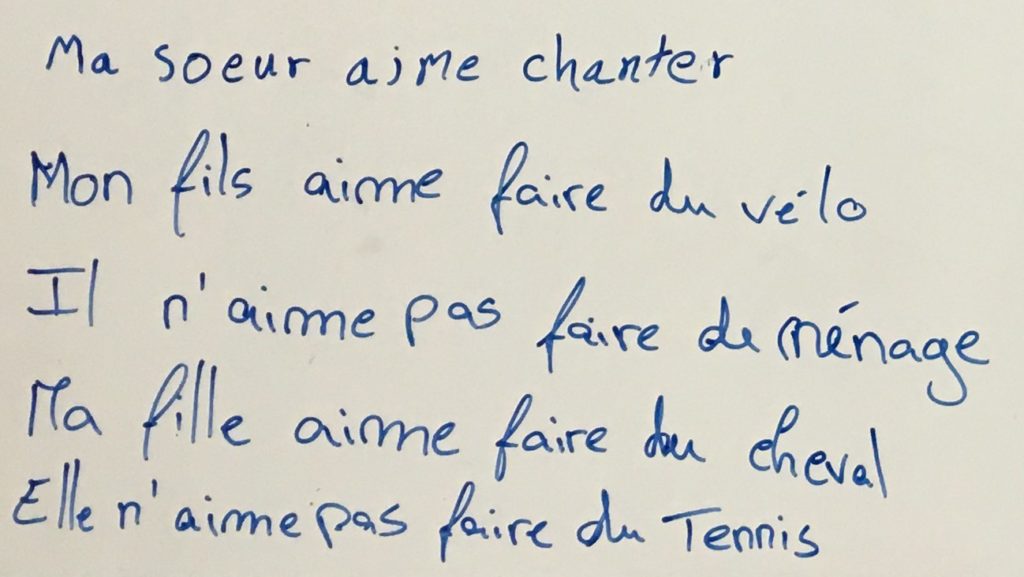 Ma soeur aime chanter
Mon fils aime faire du vélo
Il n'aime pas faire de ménage
Ma fille aime faire du cheval
Elle n'aime pas faire du Tennis